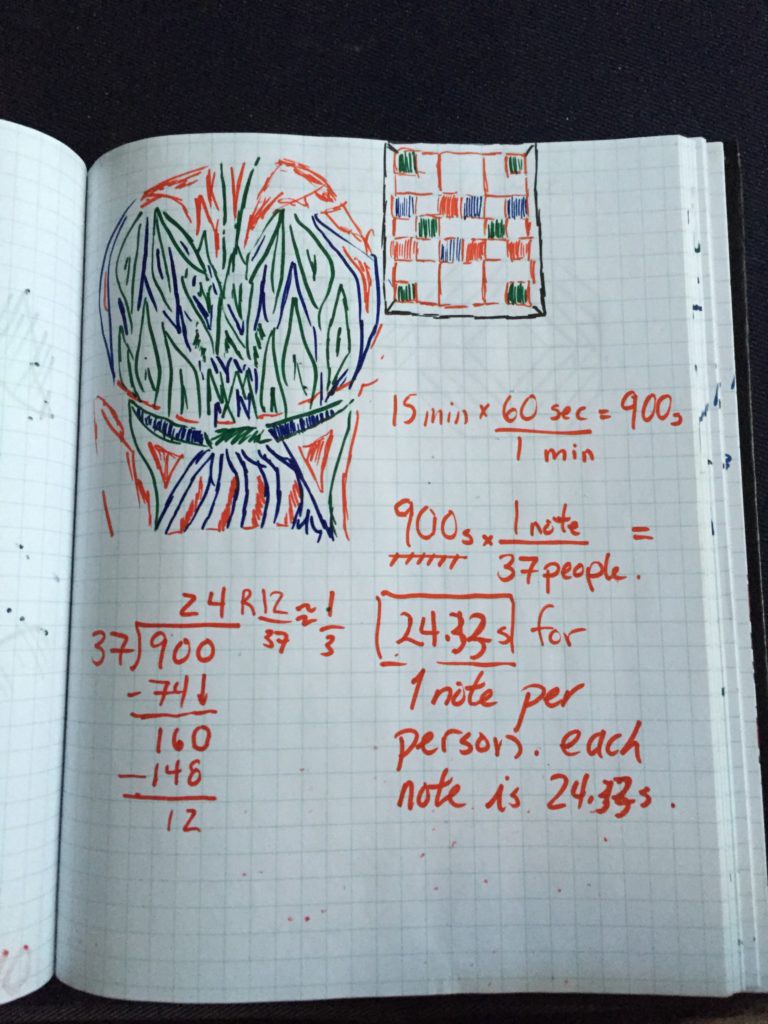 15 min × 60 sec = 900s
1 min
900s × 1 note =
37 people.
24.33 s for
1 note per
person. each
note is 24.33s.
24 R12 ≈ 1
37 3
37)900
-74↓
160
-148
12